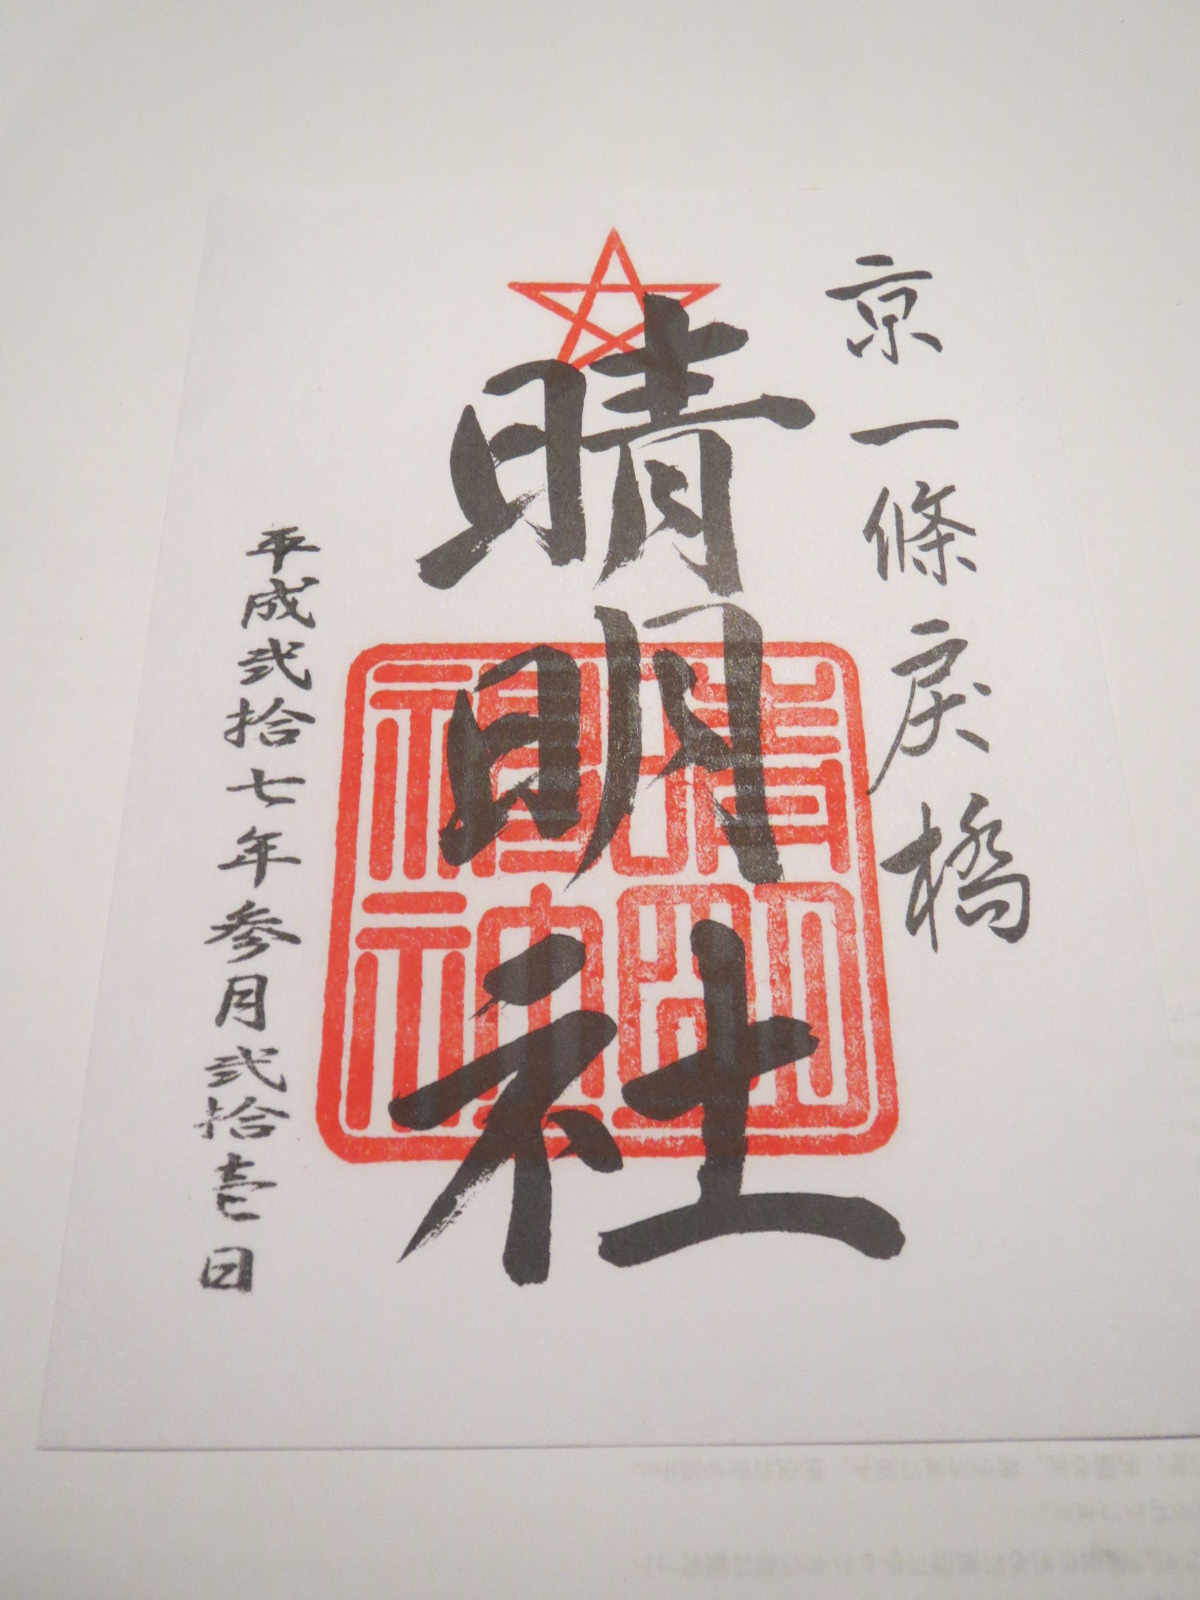 京一條戻橋
晴明社
晴明神社
平成弐拾七年参月弐拾壱日